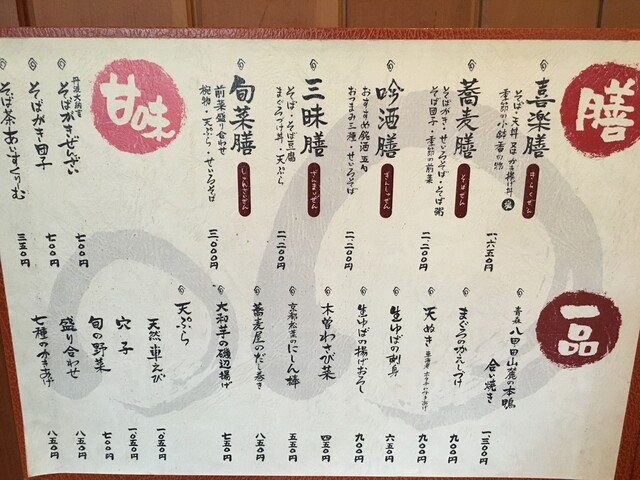 膳
喜楽膳
きらくぜん
そば・天丼 又はかき揚げ丼
季節の小鉢 香の物
一、六五〇円
蕎麦膳
そばぜん
そばがき・せいろそば
そば団子・季節の前菜
そば粥
二、二〇〇円
吟酒膳
ぎんしゅぜん
おすすめ銘酒 五勺
おつまみ三種・せいろそば
二、二〇〇円
三昧膳
ざんまいぜん
そば・そば豆腐
まぐろづけ丼・天ぷら
二、二〇〇円
旬菜膳
しゅんさいぜん
前菜盛り合わせ
椀物・天ぷら・せいろそば
三、〇〇〇円
甘味
丹波大納言
そばがきぜんざい
七〇〇円
そばがき団子
七〇〇円
そば茶あいすくりむ
三五〇円
一品
青森 八甲田山麓の本鴨
合い焼き
一、三〇〇円
まぐろのかえしづけ
九〇〇円
天ぬき
九〇〇円
生ゆばの刺身
六五〇円
生ゆばの揚げおろし
九〇〇円
木曽わさび菜
四五〇円
京都松葉のにしん棒
五五〇円
蕎麦屋のだし巻き
八五〇円
大和芋の磯辺揚げ
七五〇円
天ぷら
天然車えび
一、〇五〇円
穴子
一、〇五〇円
旬の野菜
七〇〇円
盛り合わせ
八五〇円
七種のかきあげ
八五〇円